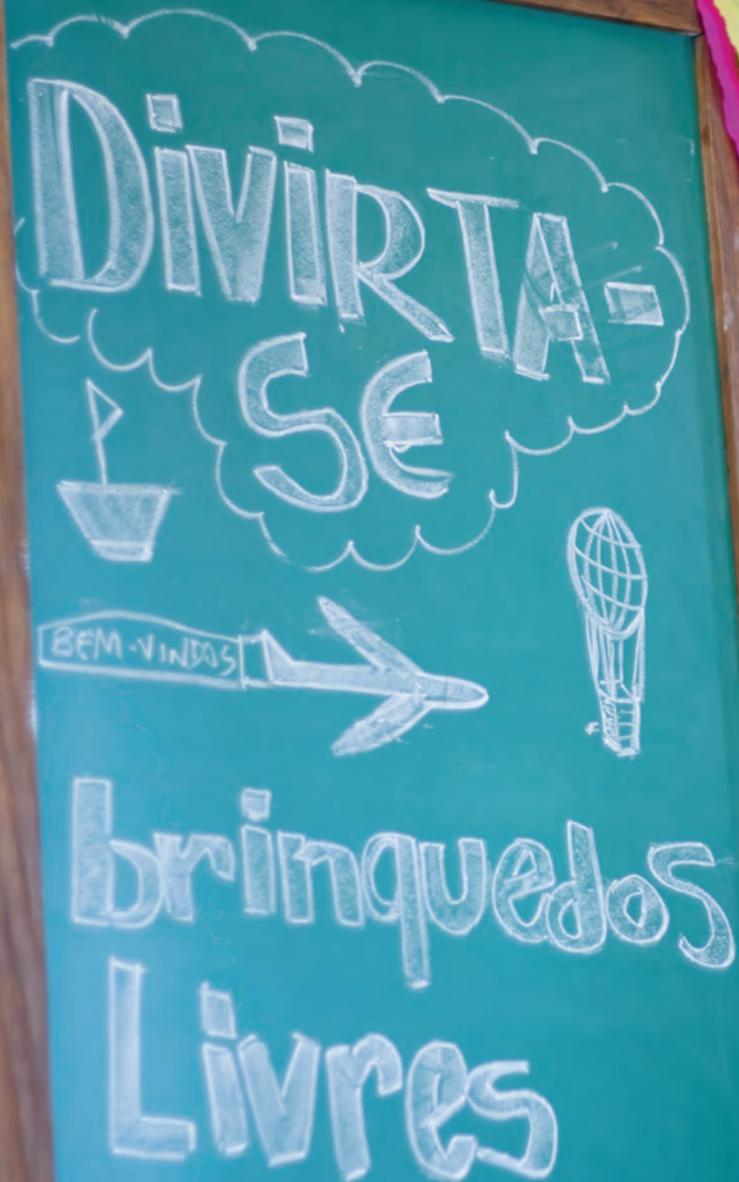 DiViRTA-
SE
BEM-VINDOS
brinquedos
Livres